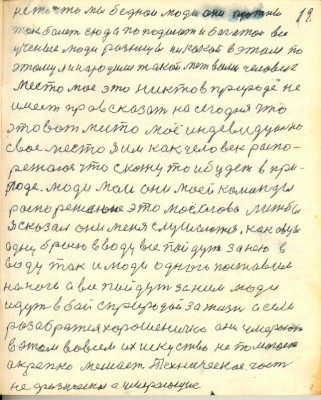 19.
не то что мы бедном люди они против
том болет сюда по подымат и богатой все
ученые люди разницы ни какой в этом по
этому и народили такой мет вами человека
место мое это никто в природе не
имеет права сказат на сегодня что
это вот мито моё индевидуально
свое место я им как человек распо-
режаюс что скажу то и будет в при-
роде. люди мои они моей команды я
распорежаюс это моё слово лижбы
я сказал они меня слушаются, как овцу
одну брошу в воду все пойдут за нею в
воду так и люди одного поставил
на ноги а все пойдут за ним люди
идут в бой с природой за жизн а если
разабратся хорошенико они умерают
в этом вовсем их искуство не помогает
а крепко мешает техническая част
не физическа а умерающие